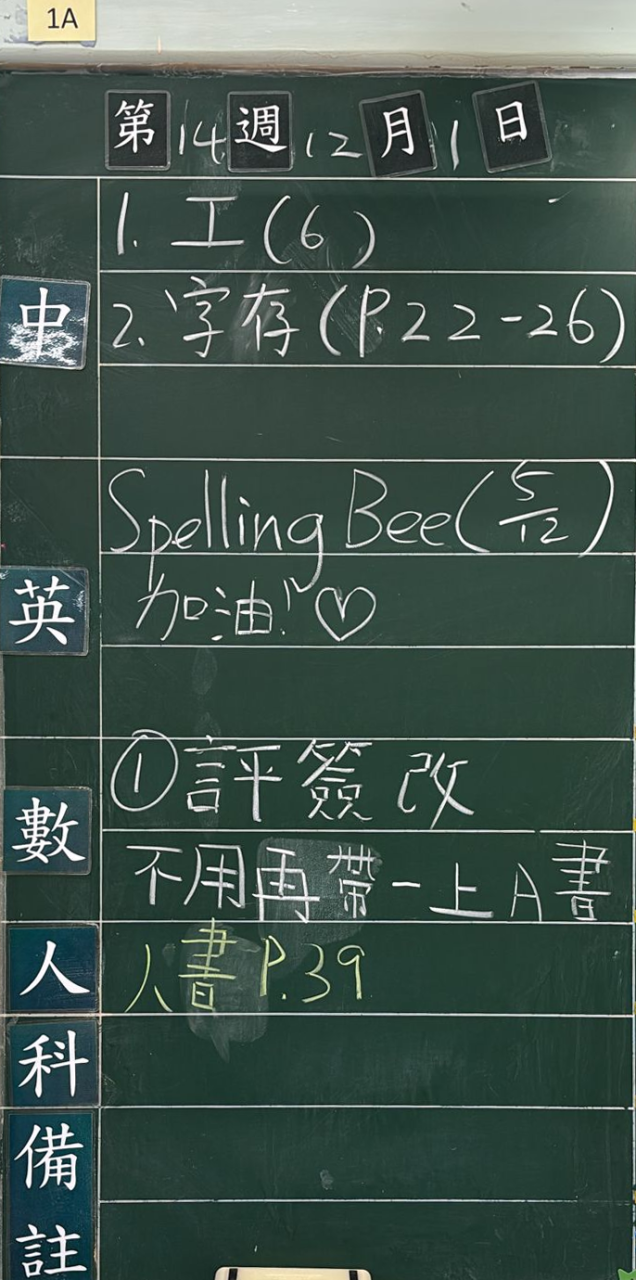 1A
第14週12月1日
中
1. 工(6)
2. 字存(P.22-26)
英
Spelling Bee(5/12)
加油!! ♡
數
①評簽改
不用再帶一上A書
人
人書P.39
科
備
註